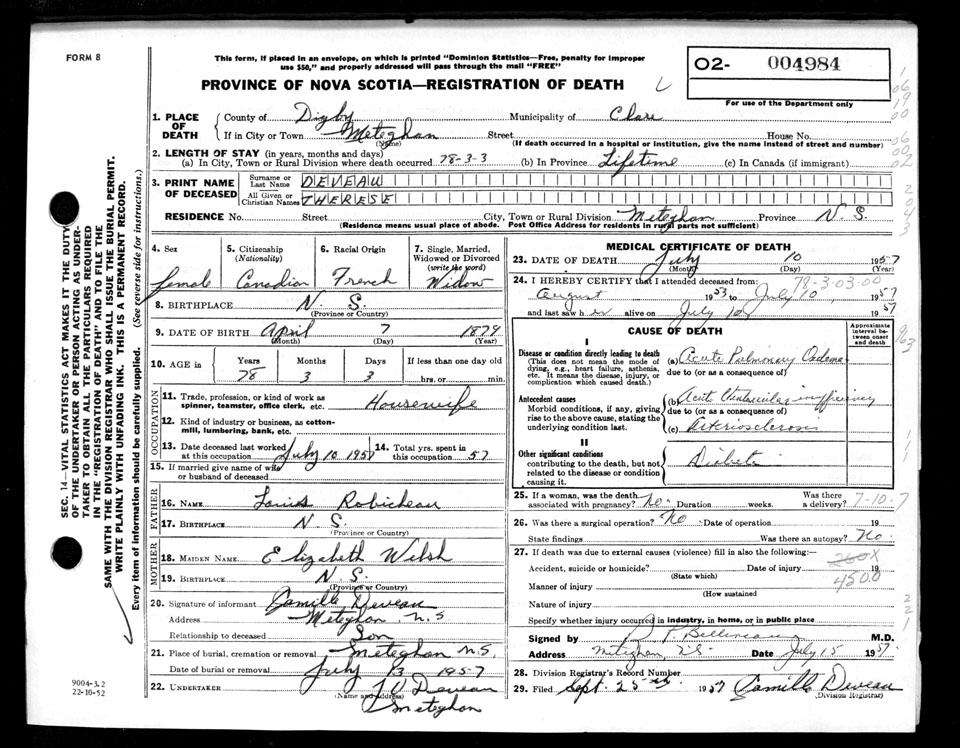 FORM 8
This form, if placed in an envelope, on which is printed "Dominion Statistics—Free, penalty for improper
use $50," and properly addressed will pass through the mail "FREE"
PROVINCE OF NOVA SCOTIA—REGISTRATION OF DEATH
O2- 004984
For use of the Department only
1. PLACE OF DEATH
County of Digby Municipality of Clare
If in City or Town Meteghan Street House No.
(Name) (If death occurred in a hospital or institution, give the name instead of street and number)
2. LENGTH OF STAY (in years, months and days)
(a) In City, Town or Rural Division where death occurred 78-3-3 (b) In Province Lifetime (c) In Canada (if immigrant)
3. PRINT NAME OF DECEASED
Surname or Last Name DEVEAU
All Given or Christian Names THERESE
RESIDENCE No. Street City, Town or Rural Division Meteghan Province N. S.
(Residence means usual place of abode. Post Office Address for residents in rural parts not sufficient)
4. Sex
female
5. Citizenship
(Nationality)
Canadian
6. Racial Origin
French
7. Single, Married, Widowed or Divorced
(write the word)
Widow
8. BIRTHPLACE N. S.
(Province or Country)
9. DATE OF BIRTH April 7 1879
(Month) (Day) (Year)
10. AGE in
Years Months Days If less than one day old
78 3 3 hrs. or min.
OCCUPATION
11. Trade, profession, or kind of work as
spinner, teamster, office clerk, etc. Housewife
12. Kind of industry or business, as cotton-
mill, lumbering, bank, etc.
13. Date deceased last worked
at this occupation July 10 1957
14. Total yrs. spent in
this occupation 57
15. If married give name of wife
or husband of deceased
FATHER
16. NAME Louis Robicheau
17. BIRTHPLACE N S.
(Province or Country)
MOTHER
18. MAIDEN NAME Elizabeth Welsh
19. BIRTHPLACE N. S.
(Province or Country)
20. Signature of informant Camille Deveau
Address Meteghan N.S
Relationship to deceased Son
21. Place of burial, cremation or removal Meteghan N.S.
Date of burial or removal July 13 1957
22. UNDERTAKER Deveau
(Name and address)
Meteghan
MEDICAL CERTIFICATE OF DEATH
23. DATE OF DEATH July 10 1957
(Month) (Day) (Year)
24. I HEREBY CERTIFY that I attended deceased from:
August 1953 to July 10, 1957
78-3-03.00
and last saw her alive on July 10 1957
CAUSE OF DEATH
Approximate interval between onset and death
I
Disease or condition directly leading to death
(This does not mean the mode of
dying, e.g., heart failure, asthenia,
etc. It means the disease, injury, or
complication which caused death.)
(a) Acute Pulmonary Oedema
due to (or as a consequence of)
Antecedent causes
Morbid conditions, if any, giving
rise to the above cause, stating the
underlying condition last.
(b) Acute Ventricular insufficiency
due to (or as a consequence of)
(c) Arteriosclerosis
II
Other significant conditions
contributing to the death, but not
related to the disease or condition
causing it.
25. If a woman, was the death
associated with pregnancy? No. Duration weeks. Was there
a delivery?
7-10-7
26. Was there a surgical operation? No Date of operation 19
State findings Was there an autopsy? No.
27. If death was due to external causes (violence) fill in also the following:—
Accident, suicide or homicide? Date of injury 19
(State which)
Manner of injury
(How sustained
Nature of injury
Specify whether injury occurred in industry, in home, or in public place
Signed by M.D.
Address Meteghan, N.S. Date July 15 1957
28. Division Registrar's Record Number
29. Filed Sept. 25 1957 Camille Deveau
(Division Registrar)
SEC. 14—VITAL STATISTICS ACT MAKES IT THE DUTY
OF THE UNDERTAKER OR PERSON ACTING AS UNDER-
TAKER TO OBTAIN ALL THE PARTICULARS REQUIRED
IN THE "REGISTRATION OF DEATH" AND TO FILE THE
SAME WITH THE DIVISION REGISTRAR WHO SHALL ISSUE THE BURIAL PERMIT.
WRITE PLAINLY WITH UNFADING INK. THIS IS A PERMANENT RECORD.
Every item of information should be carefully supplied. (See reverse side for instructions.)
9004-3.2
22-10-52